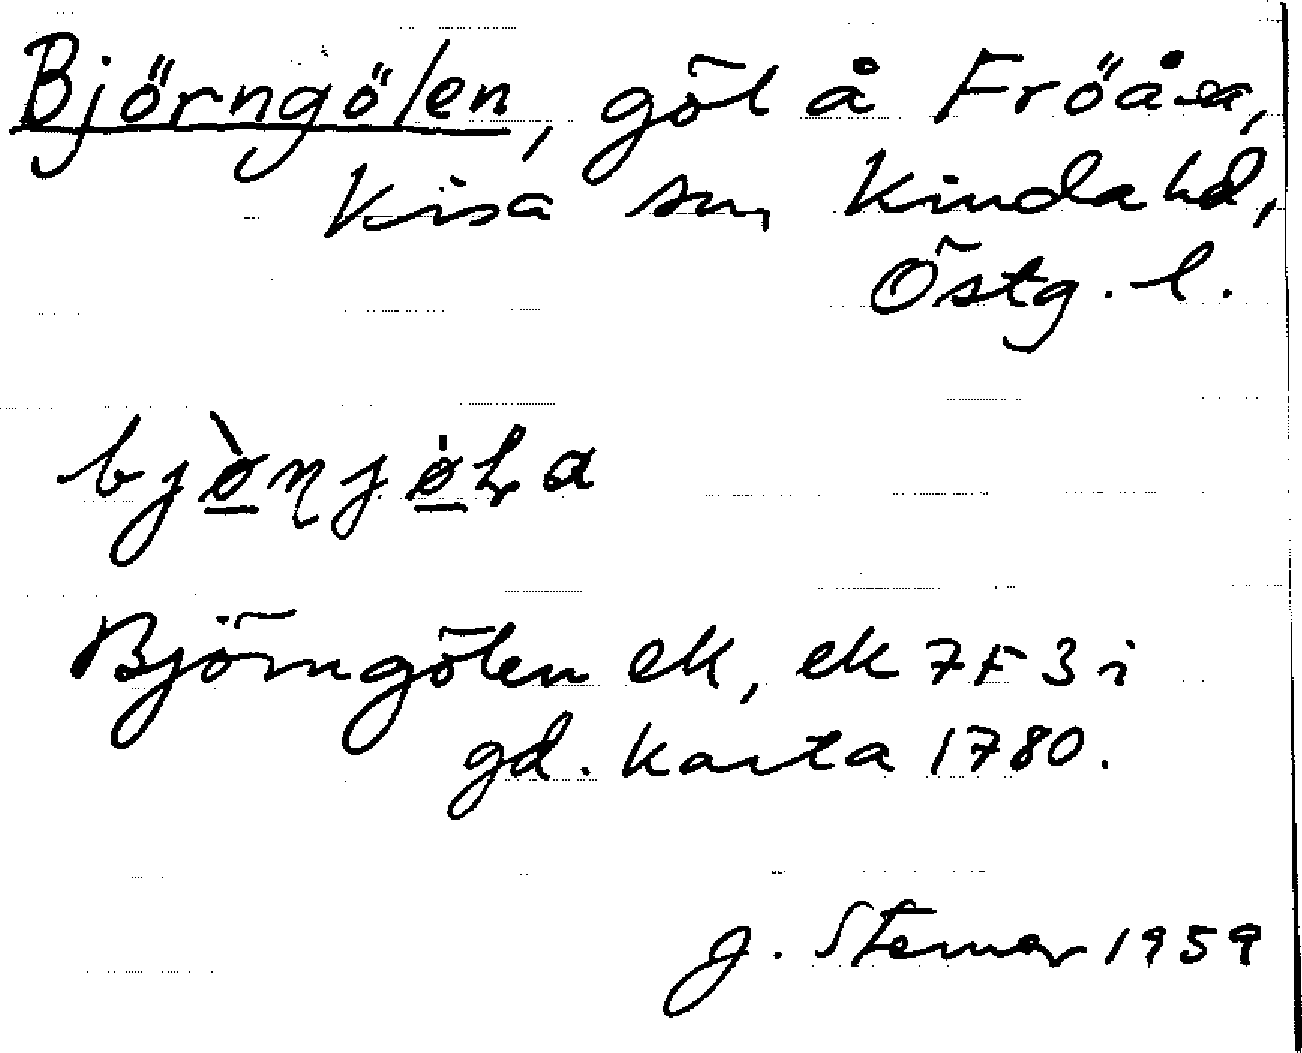 Björngölen, göl å Fröåsa,
Kisa sn, Kinda hd,
Östg. l.
bjö̀ɳjöla
Björngölen ek, ek 7F3i
gd. karta 1780.
J. Stemar 1959